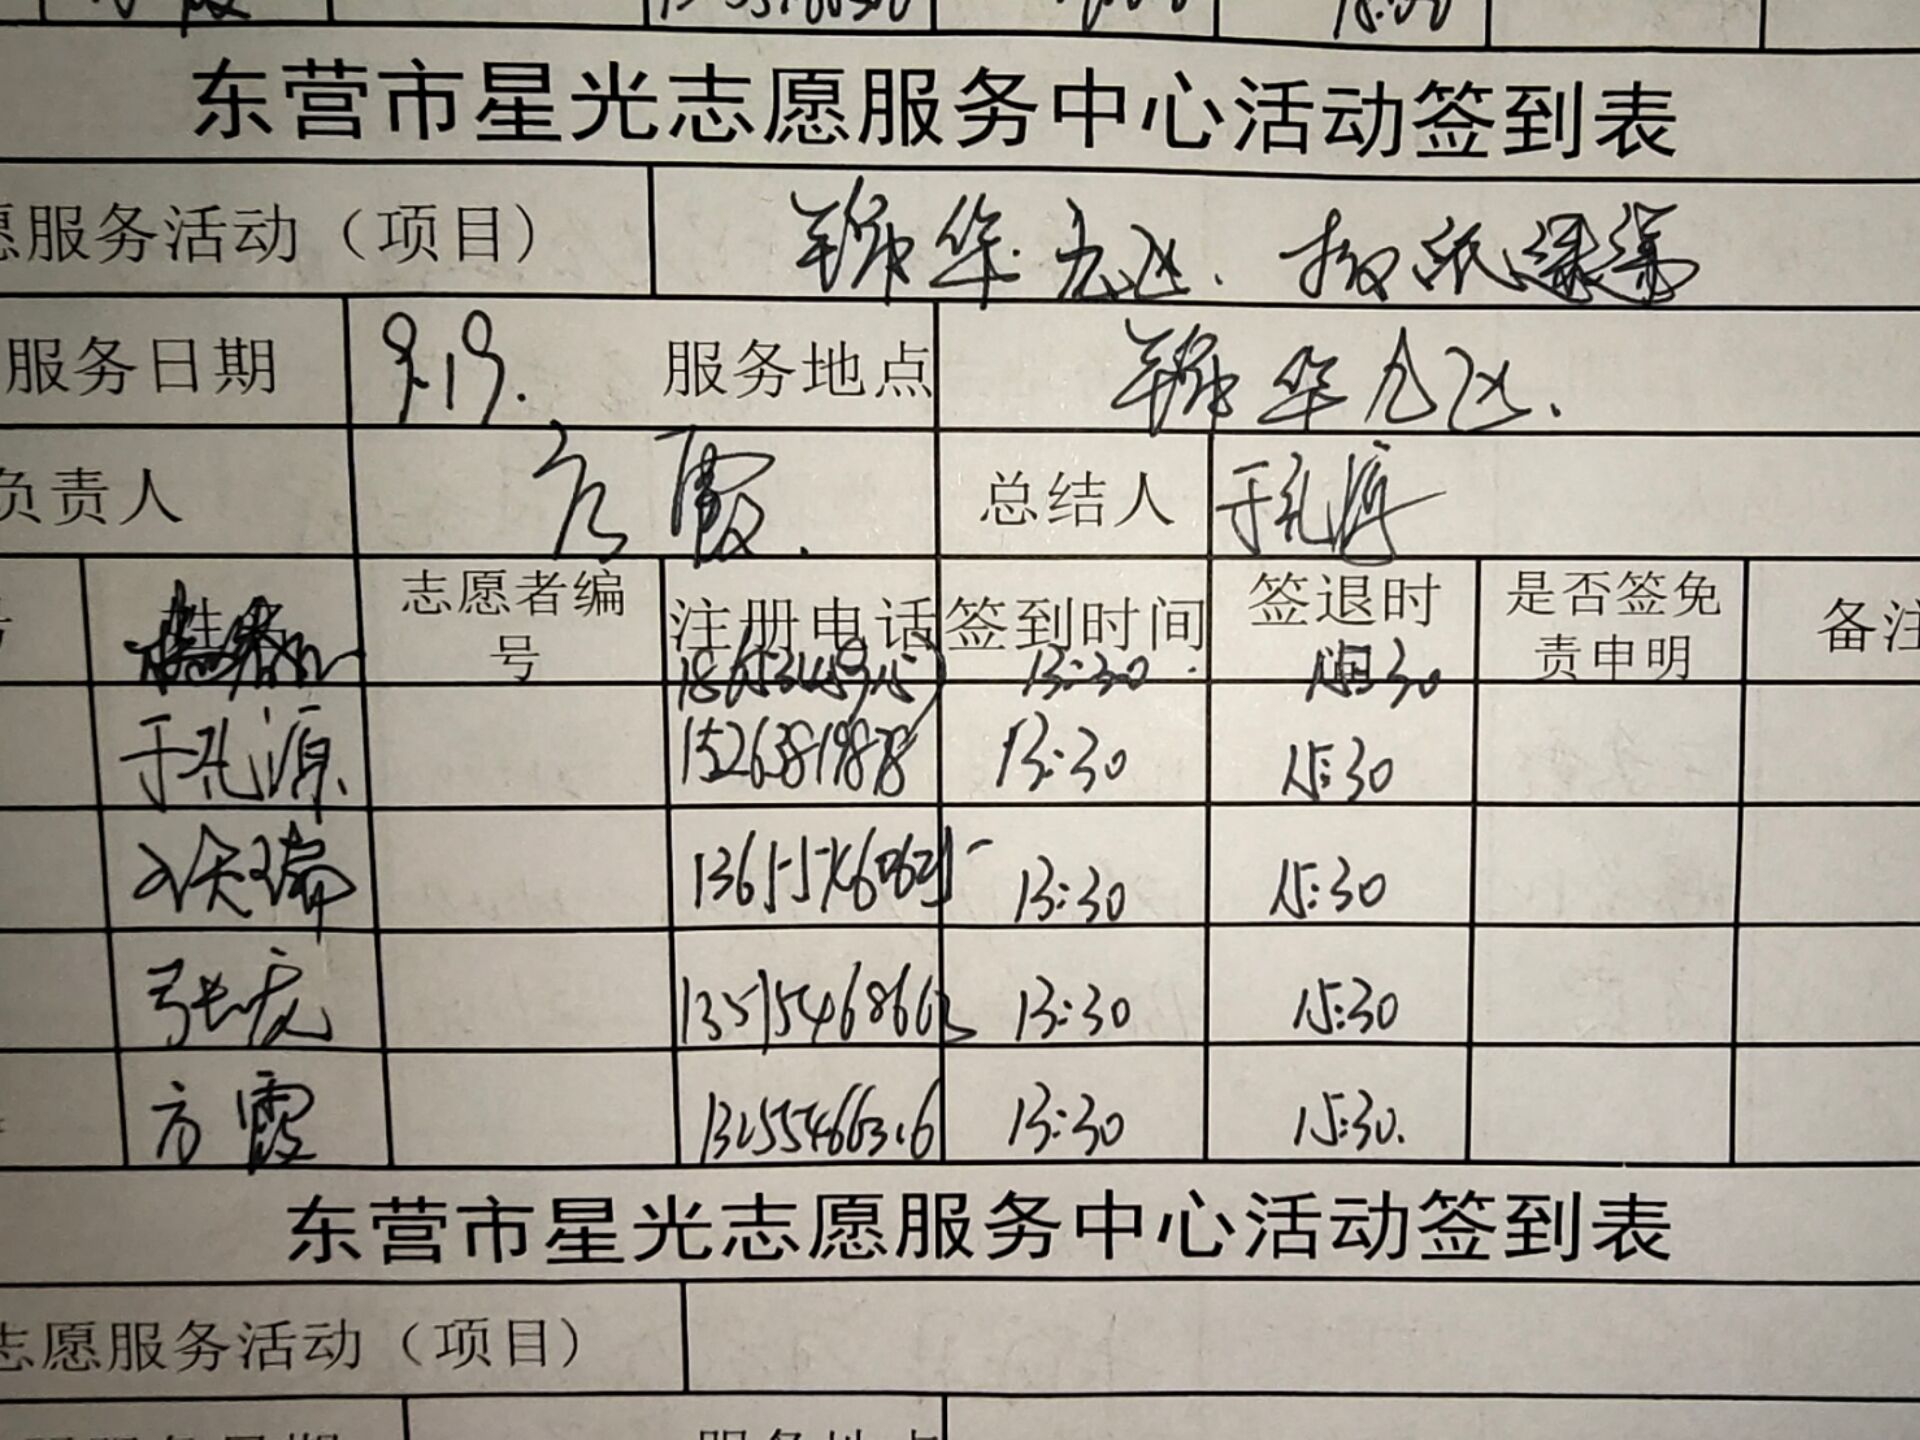 东营市星光志愿服务中心活动签到表
愿服务活动（项目） 锦华九区.
服务日期 9.19. 服务地点 锦华九区.
负责人 方霞. 总结人 于孔源
姓名 志愿者编号 注册电话 签到时间 签退时间 是否签免责申明 备注
13:30 15:30
于孔源. 15263819878 13:30 15:30
13:30 15:30
张庆 13515468663 13:30 15:30
方霞 13255466316 13:30 15:30.
东营市星光志愿服务中心活动签到表
志愿服务活动（项目）
服务日期 服务地点